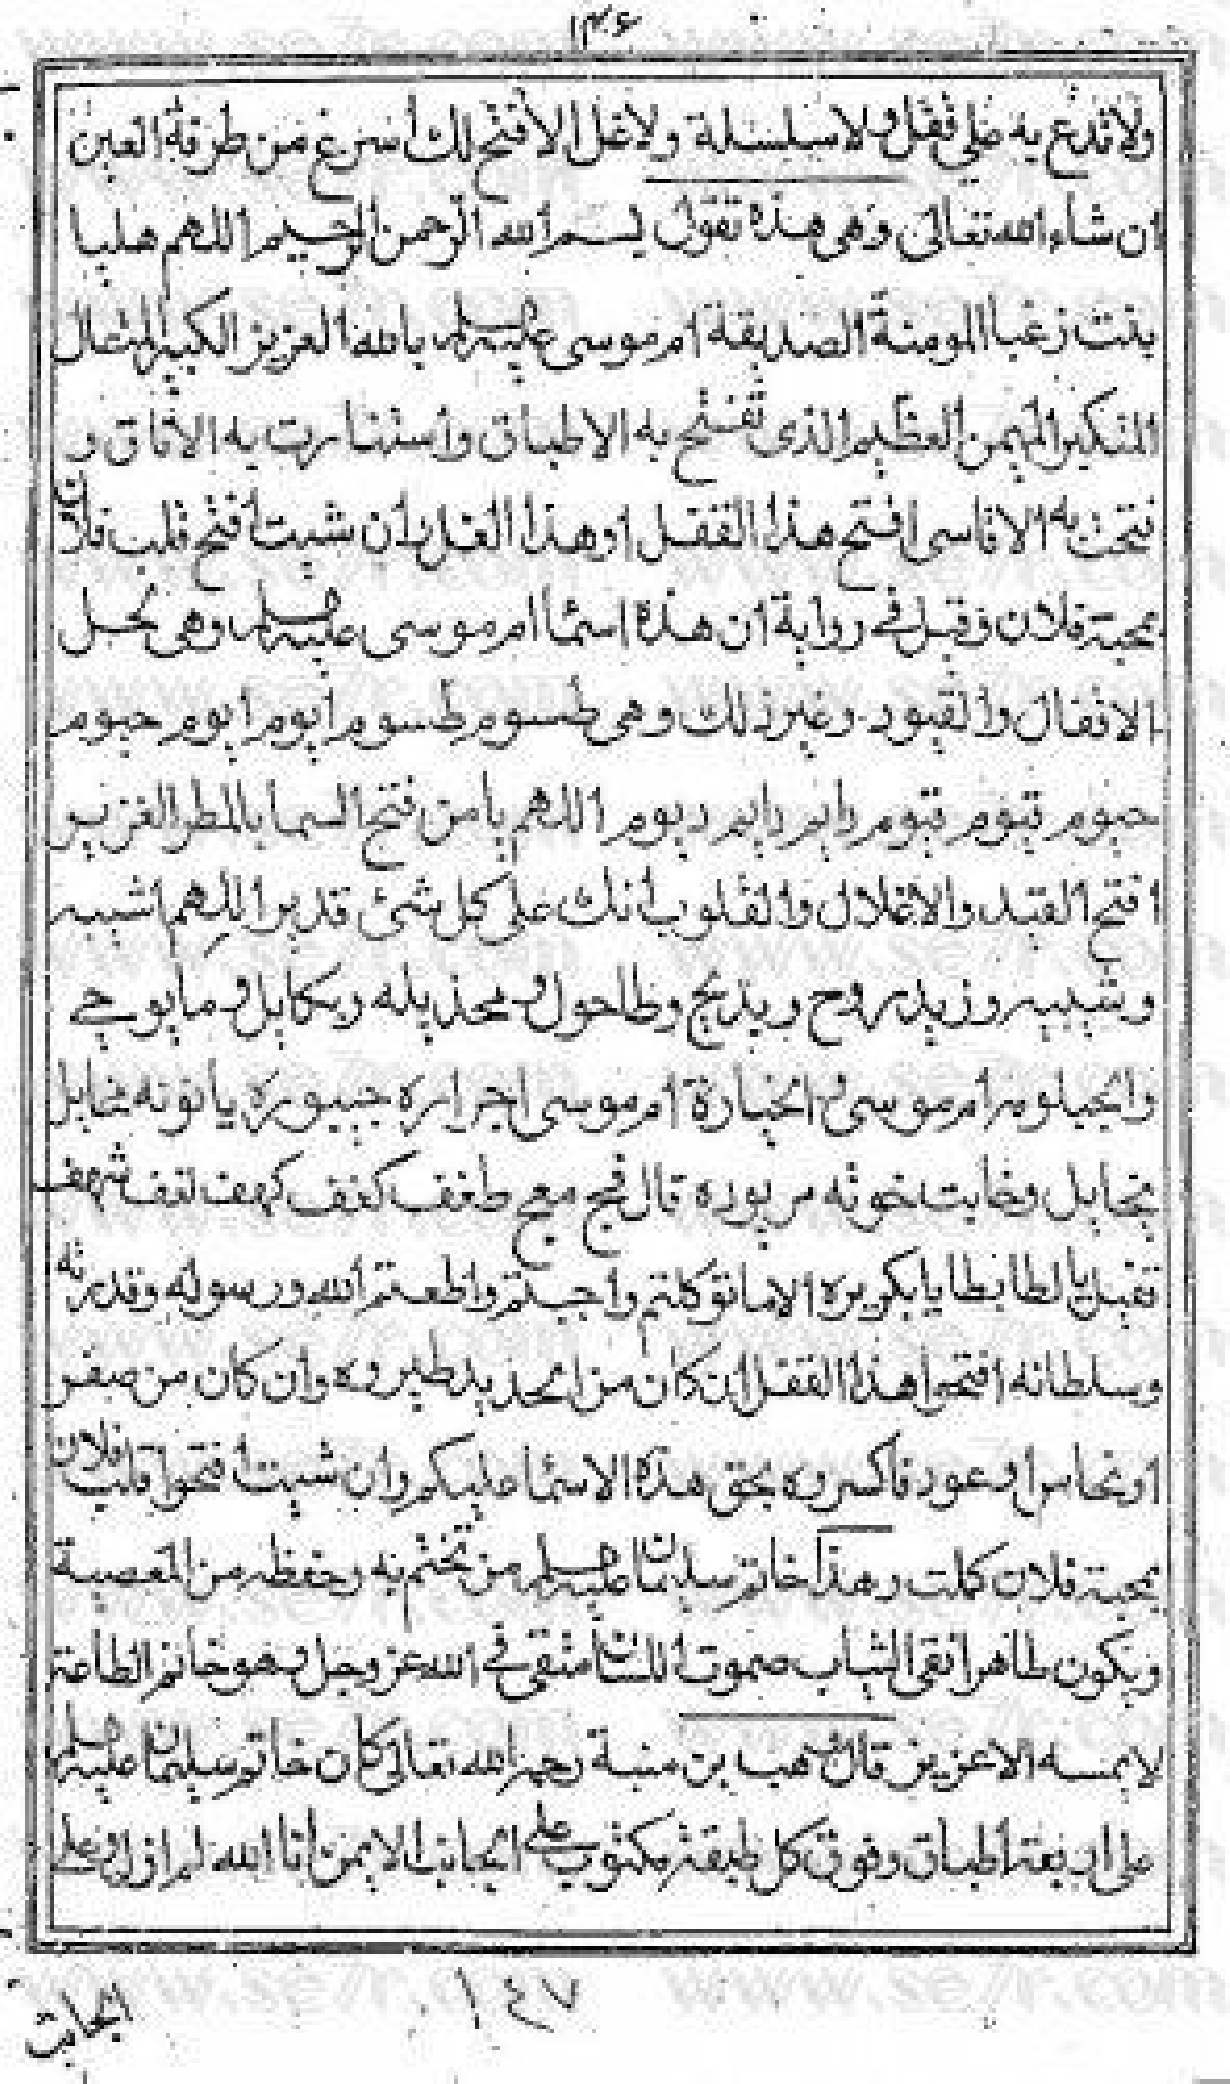 ١٣٤
ولا تدع به على قفل ولا سلسلة ولا غل الا فتح لك اسرع من طرفة العين
ان شاء الله تعالى وهى هذه تقول بسم الله الرحمن الرحيم اللهم هلبا
بنت زغبا المومنة الصديقة ام موسى عليه السلام بالله العزيز الكبير المتعال
المتكبر المهيمن العظيم الذى تفتح به الاطباق واستنارت به الافاق و
فتحت به الاقاسى افتح هذا القفل او هذا الغل وان شيت افتح قلب فلان
بمحبة فلان وقيل فى رواية ان هذه اسمأ ام موسى عليه السلام وهى تحل
الاقفال والقيود وغير ذلك وهى طسوم طسوم ايوم ايوم حيوم
حيوم قيوم قيوم دايم دايم ديوم اللهم يا من فتح السما بالمطر الغزير
افتح القيد والاغلال والقلوب انك على كل شئ قدير اللهم اشبيه
وشبيبه وزيد روح ويديج وطلحول ومحذيله وبكايل وما يوحى
ام موسى ام موسى اجراره جيوره
نحايل خوته مريوره قال فج مج طغف كفف كهف
الا ما توكلتم واجبتم واطعتم الله ورسوله وقدرته
وسلطانه افتحوا هذا القفل ان كان من الحديد طيروه وان كان من صفر
او نحاس او عود فاكسروه بحق هذه الاسمأ عليكم وان شيت افتحوا قلب فلان
بمحبة فلان كلت وهذا خاتم سليمان عليه السلام من تختم به حفظه من المعصية
ويكون طاهرا نقى الثياب صموت اللسان متقى فى الله عز وجل وهو خاتم الطاعة
لا يمسه الا عزيز قال وهب بن منبة رحمه الله تعالى كان خاتم سليمان عليه السلام
على اربعة اطباق وفوق كل طبقة مكتوب على الجانب الايمن انا الله لم ازل وعلى
١٤٧
الجانب